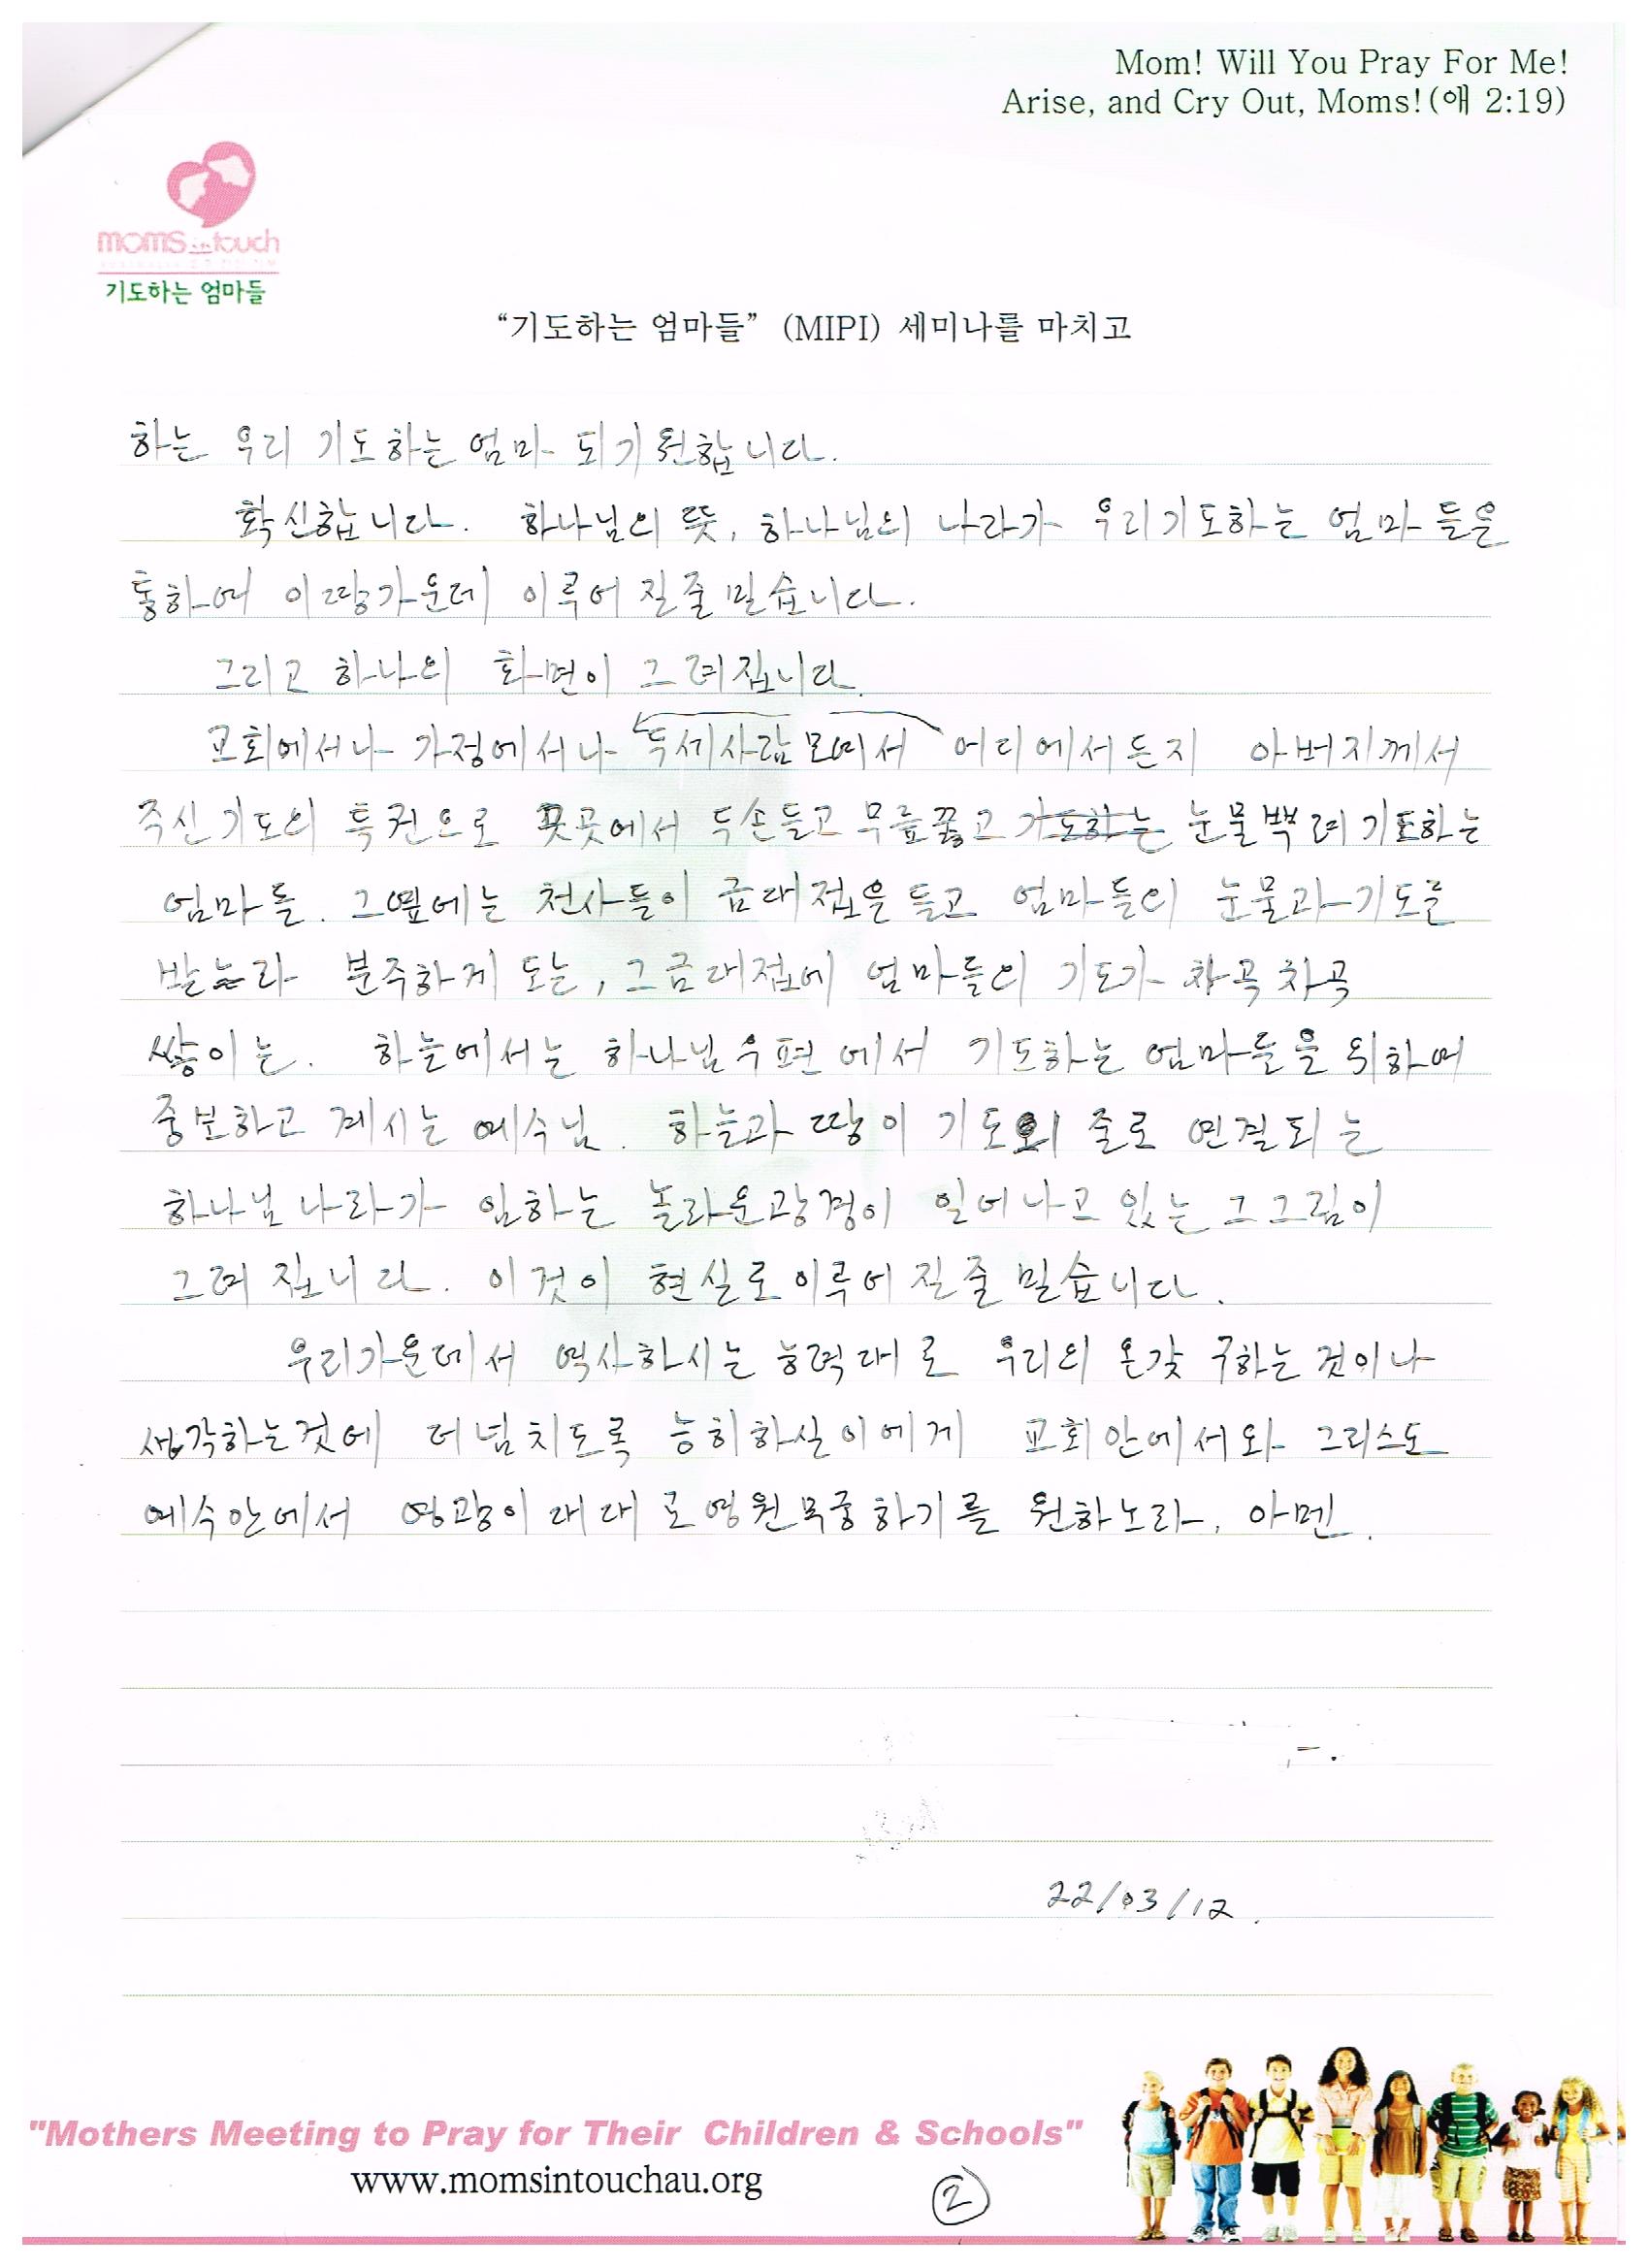 Mom! Will You Pray For Me!
Arise, and Cry Out, Moms!(애 2:19)
moms in touch
기도하는 엄마들
“기도하는 엄마들” (MIPI) 세미나를 마치고
하는 우리 기도하는 엄마 되기 원합니다.
확신합니다. 하나님의 뜻, 하나님의 나라가 우리기도하는 엄마들을
통하여 이땅가운데 이루어 질줄 믿습니다.
그리고 하나의 화면이 그려집니다.
교회에서나 가정에서나 두세사람 모여서 어디에서든지 아버지께서
주신기도의 특권으로 곳곳에서 두손들고 무릎꿇고 기도하는 눈물뿌려 기도하는
엄마들. 그옆에는 천사들이 금대접을 들고 엄마들의 눈물과 기도를
받느라 분주하게 도는, 그금대접에 엄마들의 기도가 차곡차곡
쌓이는. 하늘에서는 하나님 우편에서 기도하는 엄마들을 위하여
중보하고 계시는 예수님. 하늘과 땅이 기도의 줄로 연결되는
하나님 나라가 임하는 놀라운광경이 일어나고 있는 그 그림이
그려 집니다. 이것이 현실로 이루어 질줄 믿습니다.
우리가운데서 역사하시는 능력대로 우리의 온갖 구하는 것이나
생각하는것에 더 넘치도록 능히하실 이에게 교회안에서와 그리스도
예수안에서 영광이 대대로 영원무궁하기를 원하노라, 아멘.
22/03/12.
"Mothers Meeting to Pray for Their Children & Schools"
www.momsintouchau.org
2